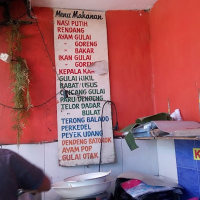 Menu Makanan
NASI PUTIH
RENDANG
AYAM GULAI
" GORENG
" BAKAR
IKAN GULAI
" GORENG
KEPALA KA
GULAI
BABAT/USUS
CINCANG GULAI
PARU/DENDENG
TELOR DADAR
" BULAT
TERONG BALADO
PERKEDEL
PEYEK UDANG
DENDENG BATOKOK
AYAM POP
GULAI OTAK